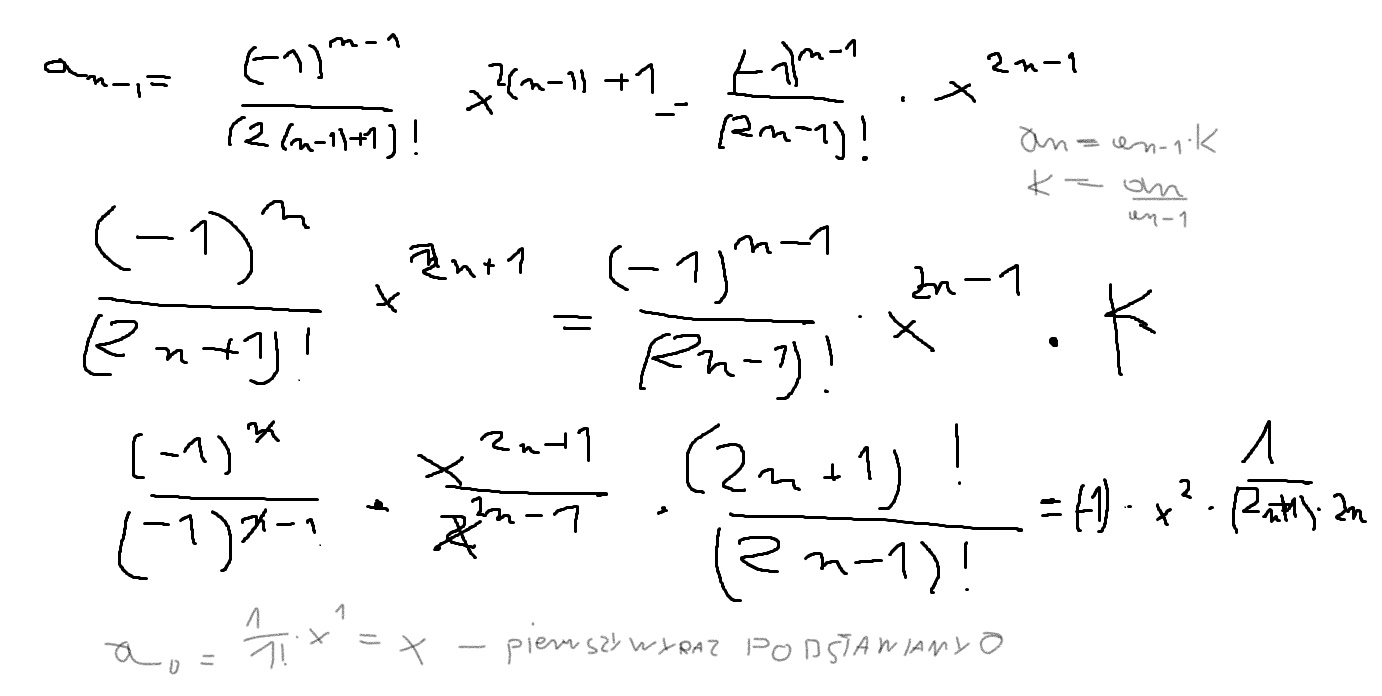 a_{n-1} = \frac{(-1)^{n-1}}{(2(n-1)+1)!} x^{2(n-1)+1} = \frac{(-1)^{n-1}}{(2n-1)!} · x^{2n-1}
an = an-1·K
K = \frac{an}{an-1}
\frac{(-1)^n}{(2n+1)!} x^{2n+1} = \frac{(-1)^{n-1}}{(2n-1)!} · x^{2n-1} · K
\frac{(-1)^n}{(-1)^{n-1}} · \frac{x^{2n+1}}{x^{2n-1}} · \frac{(2n+1)!}{(2n-1)!} = (-1) · x^2 · \frac{1}{(2n+1)·2n}
a_0 = \frac{1}{1!} · x^1 = x — pierwszy WYRAZ PODSTAWIANY 0